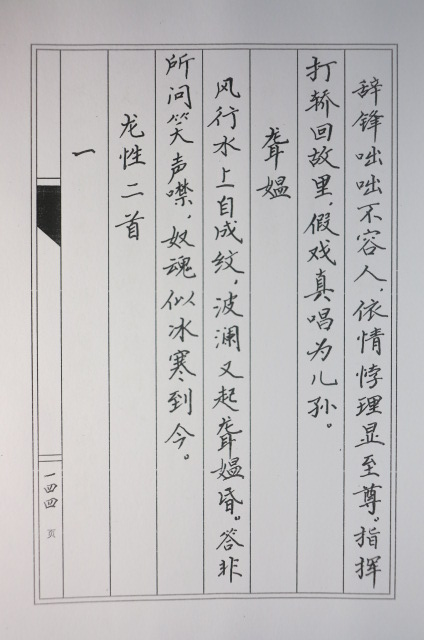 辞锋咄咄不容人，依情悖理显至尊。指挥
打轿回故里，假戏真唱为儿孙。
聋媪
风行水上自成纹，波澜又起聋媪昏。答非
所问笑声噤，奴魂似冰寒到今。
龙性二首
一
一四四页